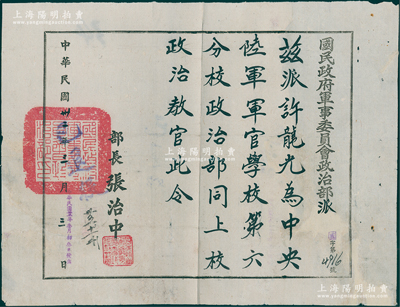 上海陽明拍賣
國民政府軍事委員會政治部派
字第4916號
茲派許龍光為中央
陸軍軍官學校第六
分校政治部同上校
政治教官此令
部長 張治中
中華民國卅 年 月 三 日
上海陽明拍賣
www.ymauction.com